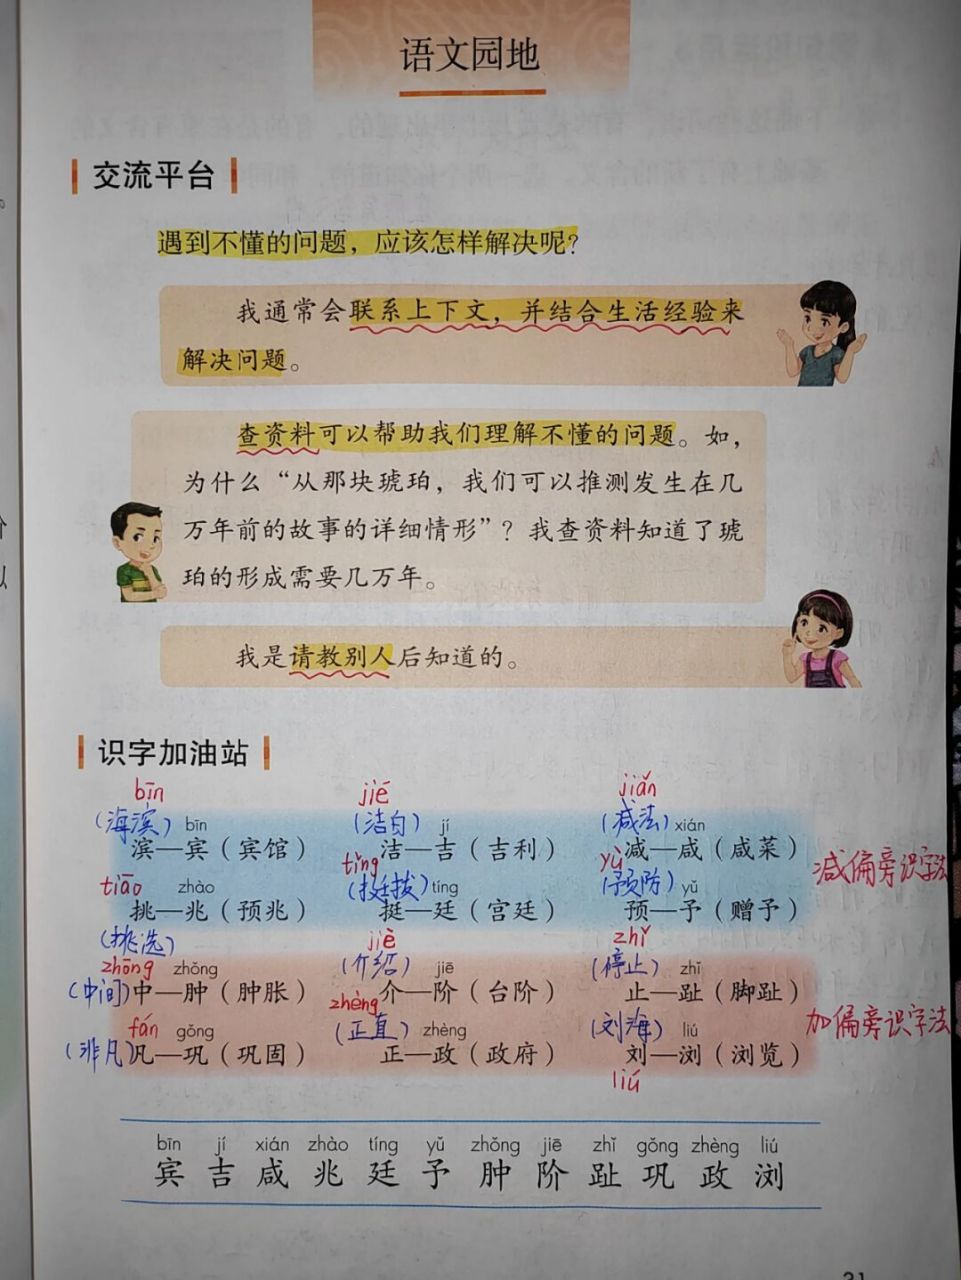 语文园地
交流平台
遇到不懂的问题，应该怎样解决呢？
我通常会联系上下文，并结合生活经验来
解决问题。
查资料可以帮助我们理解不懂的问题。如，
为什么“从那块琥珀，我们可以推测发生在几
万年前的故事的详细情形”？我查资料知道了琥
珀的形成需要几万年。
我是请教别人后知道的。
识字加油站
bīn jié jiǎn
（海滨） bīn （洁白） jí （减法） xián
滨—宾（宾馆） 洁—吉（吉利） 减—咸（咸菜）
tiāo zhào tǐng （挺拔） tíng yù （预防） yǔ
挑—兆（预兆） 挺—廷（宫廷） 预—予（赠予）
减偏旁识字法
（挑选） jiè zhǐ
zhōng zhǒng （介绍） jiē （停止） zhǐ
（中间）中—肿（肿胀） 介—阶（台阶） 止—趾（脚趾）
fán gǒng zhèng （正直） zhèng （刘海） liú
（非凡）凡—巩（巩固） 正—政（政府） 刘—浏（浏览）
加偏旁识字法
liú
bīn jí xián zhào tíng yǔ zhǒng jiē zhǐ gǒng zhèng liú
宾 吉 咸 兆 廷 予 肿 阶 趾 巩 政 浏